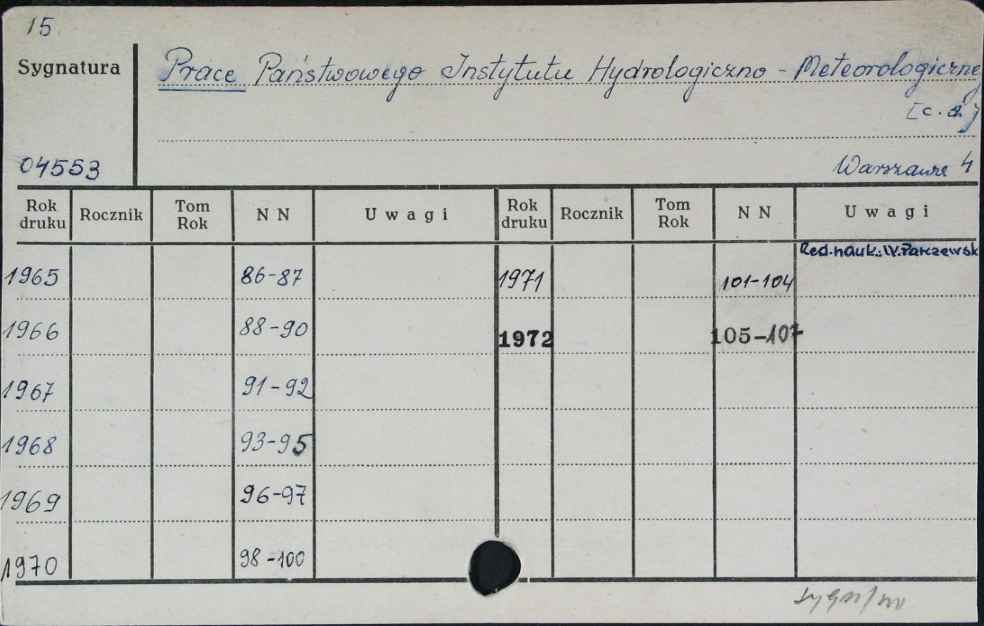 15
Sygnatura
Prace Państwowego Instytutu Hydrologiczno - Meteorologiczneg
[c.d.]
04553
Warszawa 4
Rok druku Rocznik Tom Rok NN Uwagi Rok druku Rocznik Tom Rok NN Uwagi
Red. nauk.: W. Parczewsk
1965 86-87 1971 101-104
1966 88-90 1972 105-107
1967 91-92
1968 93-95
1969 96-97
1970 98-100